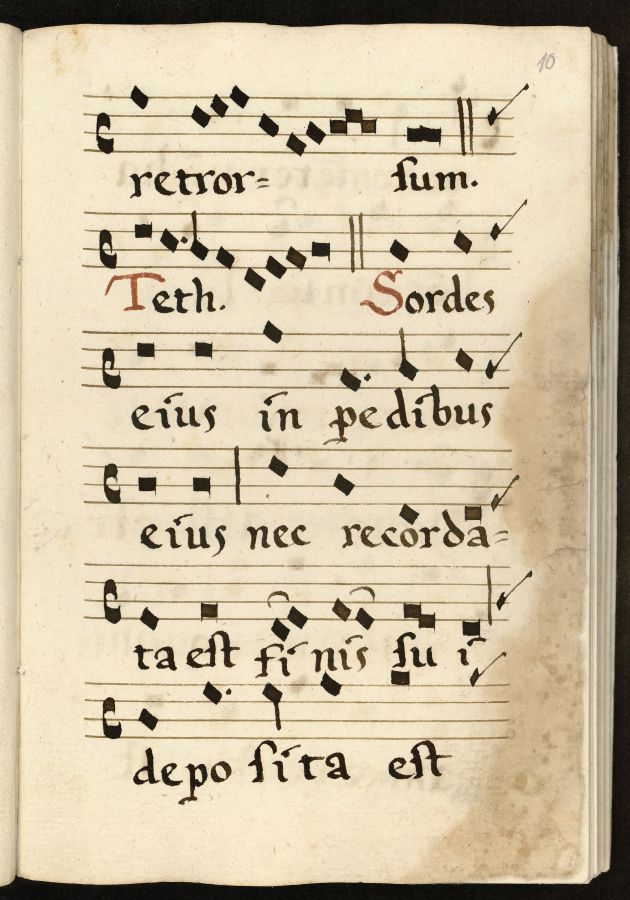 10
retror= ſum.
Teth. Sordes
eius in pedibus
eius nec recorda=
ta eſt fi nis ſu i
depo ſi ta eſt